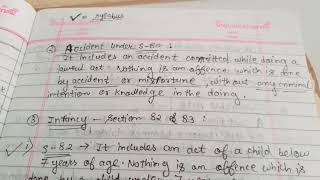 ✓ = syllabus
(2) Accident under S-80 :
It includes an accident committed while doing a
lawful act. Nothing is an offence which is done
by accident or misfortune, without any criminal
intention or knowledge in the doing.
(3) Infancy - section 82 & 83 :
✓ i) S-82 → It includes an act of a child below
7 years of age. Nothing is an offence which is
done by a child under 7